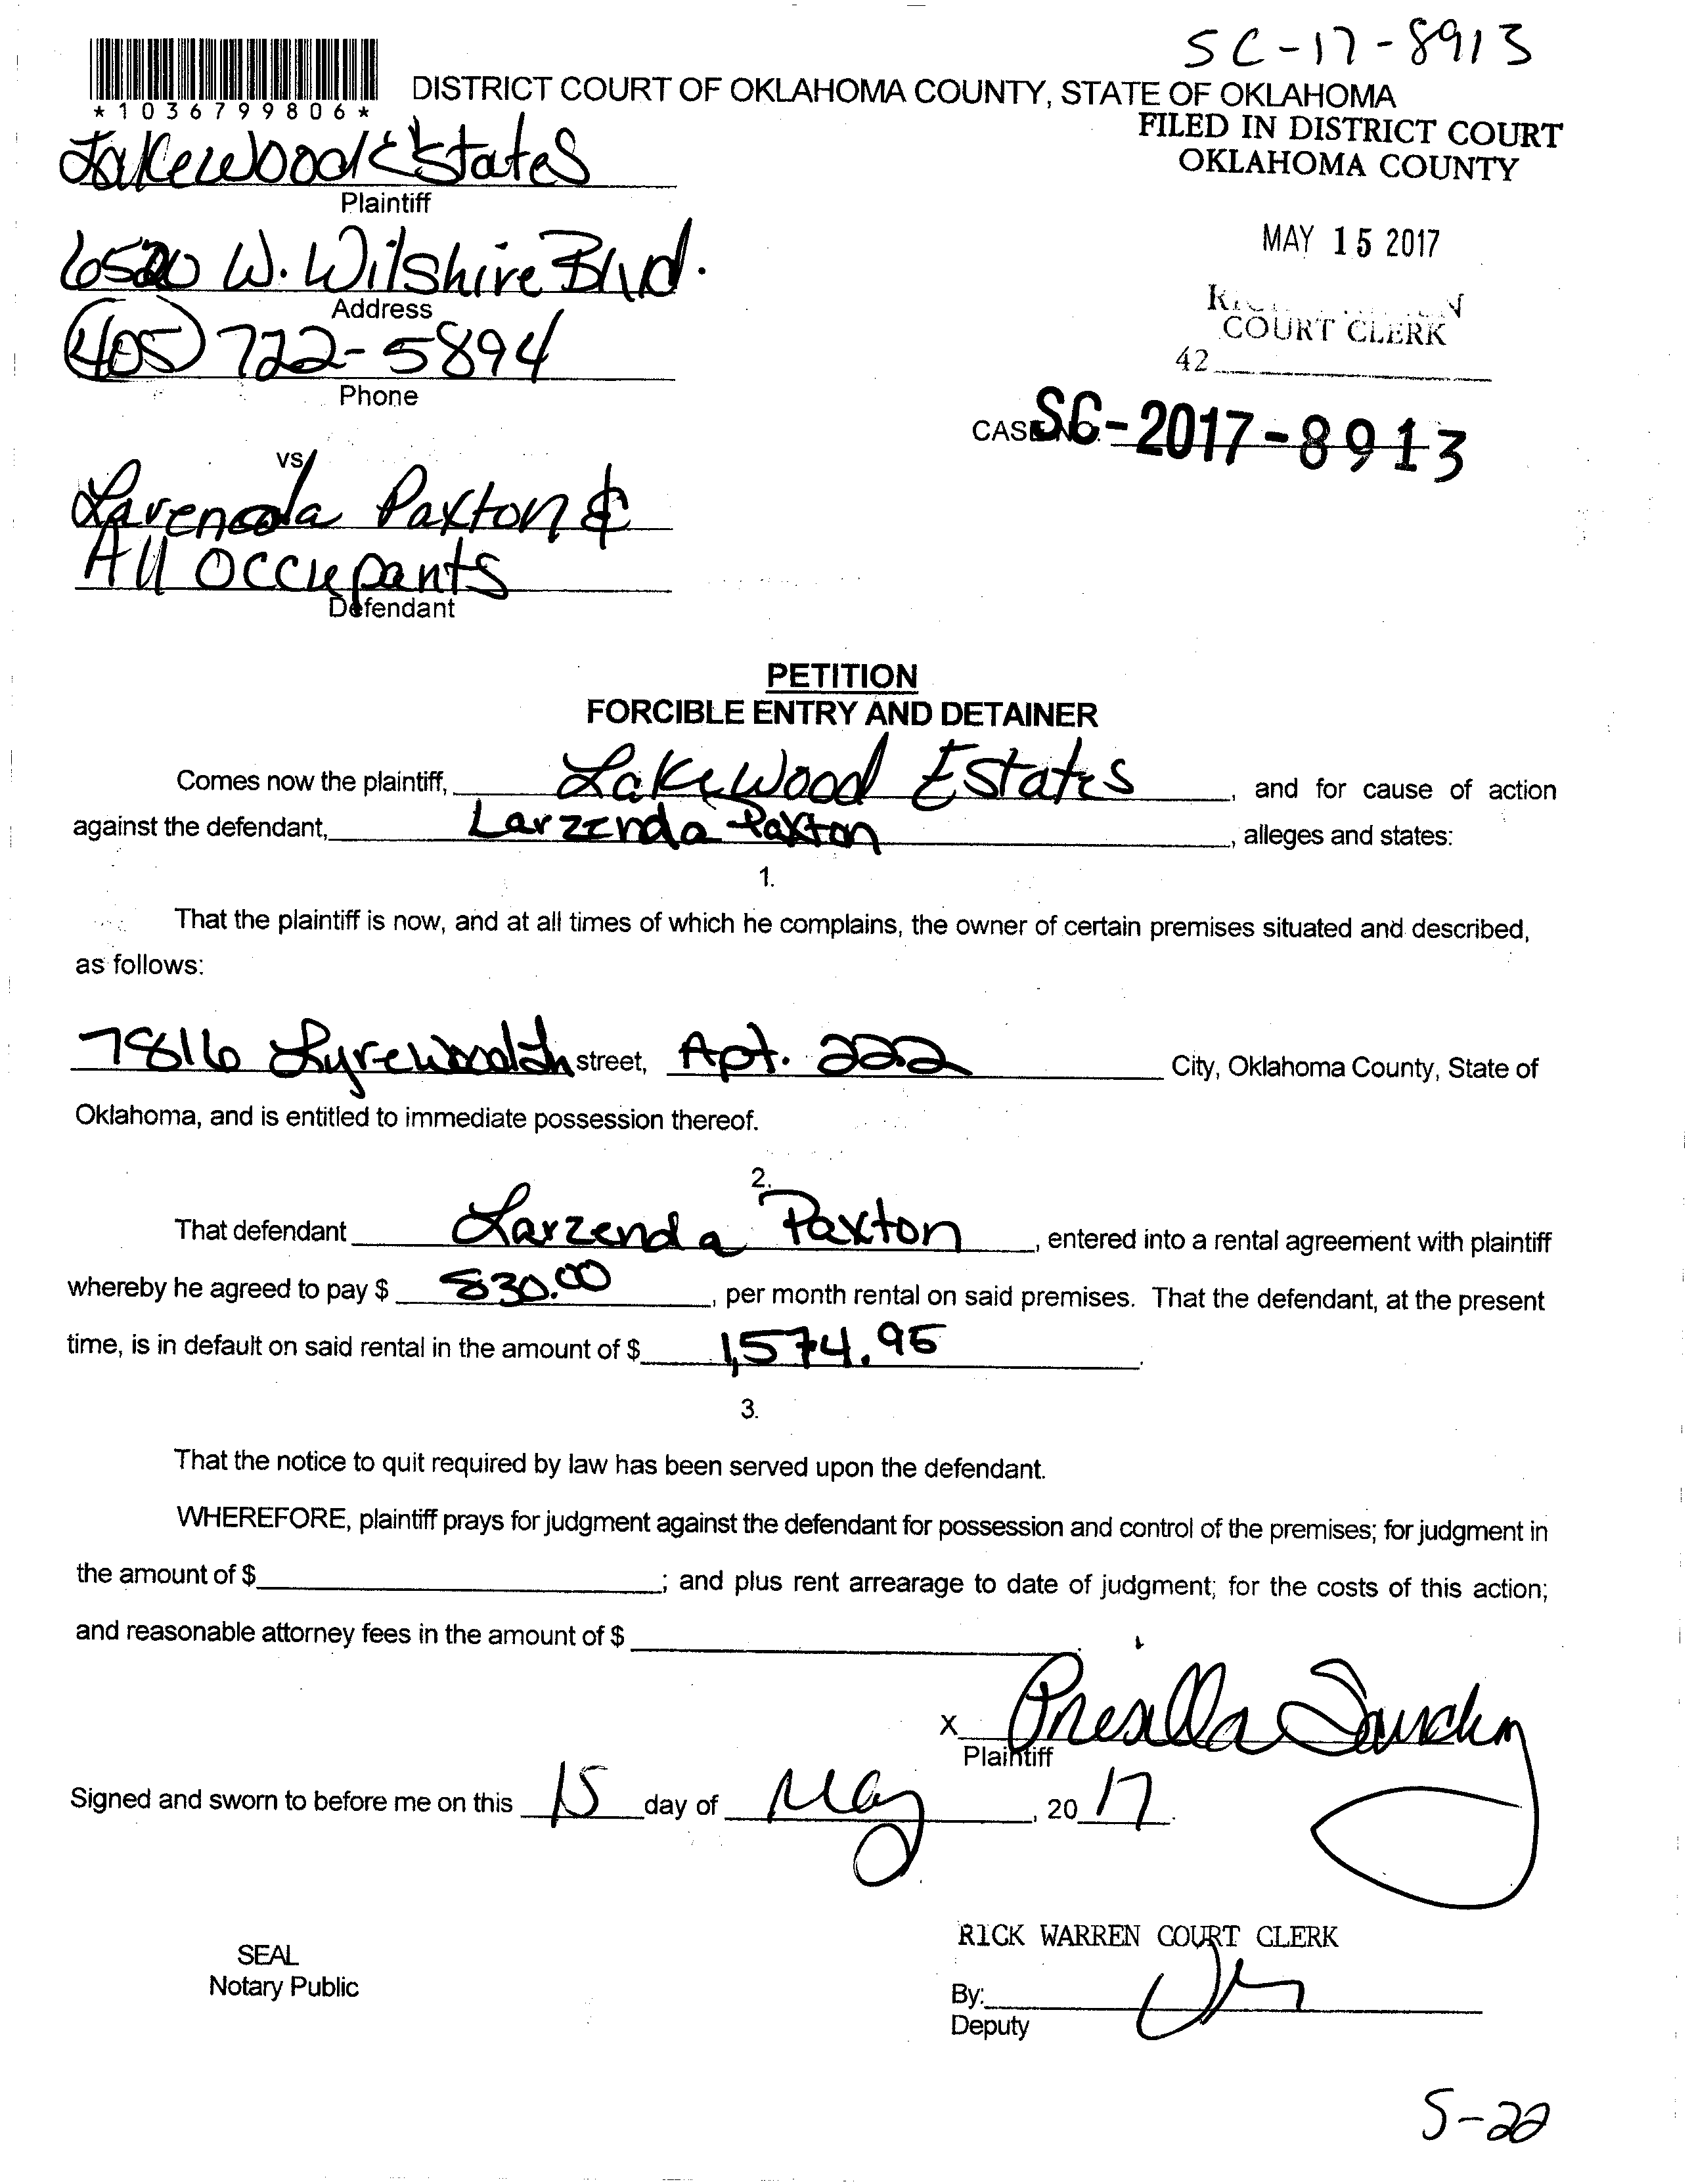 SC-17-8913
*1036799806*
DISTRICT COURT OF OKLAHOMA COUNTY, STATE OF OKLAHOMA
FILED IN DISTRICT COURT
OKLAHOMA COUNTY
Lakewood Estates
Plaintiff
MAY 15 2017
6520 W. Wilshire Blvd.
Address
COURT CLERK
42
(405) 722-5894
Phone
CASE NO. SC-2017-8913
vs
Paxton &
All Occupants
Defendant
PETITION
FORCIBLE ENTRY AND DETAINER
Comes now the plaintiff, Lakewood Estates, and for cause of action
against the defendant, Larzenda Paxton, alleges and states:
1.
That the plaintiff is now, and at all times of which he complains, the owner of certain premises situated and described,
as follows:
7816 Lyrewood Ln street, Apt. 222 City, Oklahoma County, State of
Oklahoma, and is entitled to immediate possession thereof.
2.
That defendant Larzenda Paxton, entered into a rental agreement with plaintiff
whereby he agreed to pay $ 830.00, per month rental on said premises. That the defendant, at the present
time, is in default on said rental in the amount of $ 1,574.95.
3.
That the notice to quit required by law has been served upon the defendant.
WHEREFORE, plaintiff prays for judgment against the defendant for possession and control of the premises; for judgment in
the amount of $ ; and plus rent arrearage to date of judgment; for the costs of this action;
and reasonable attorney fees in the amount of $ .
X
Plaintiff
Signed and sworn to before me on this 15 day of May, 2017.
RICK WARREN COURT CLERK
SEAL
Notary Public
By:
Deputy
5-22